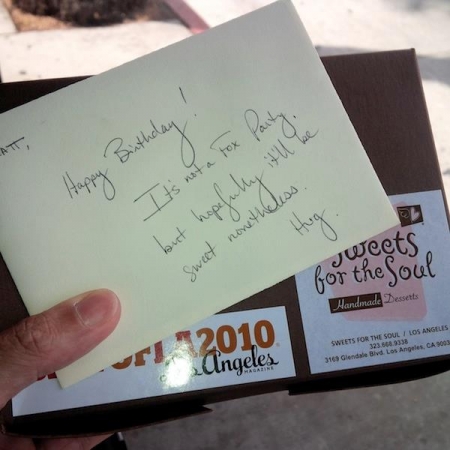 ATT,
Happy Birthday!
It's not a Fox Party,
but hopefully it'll be
sweet nonetheless.
Hug.
Sweets
for the Soul
Handmade Desserts
SWEETS FOR THE SOUL / LOS ANGELES
323.668.9338
3169 Glendale Blvd. Los Angeles, CA 9003
OF LA 2010
Los Angeles
MAGAZINE